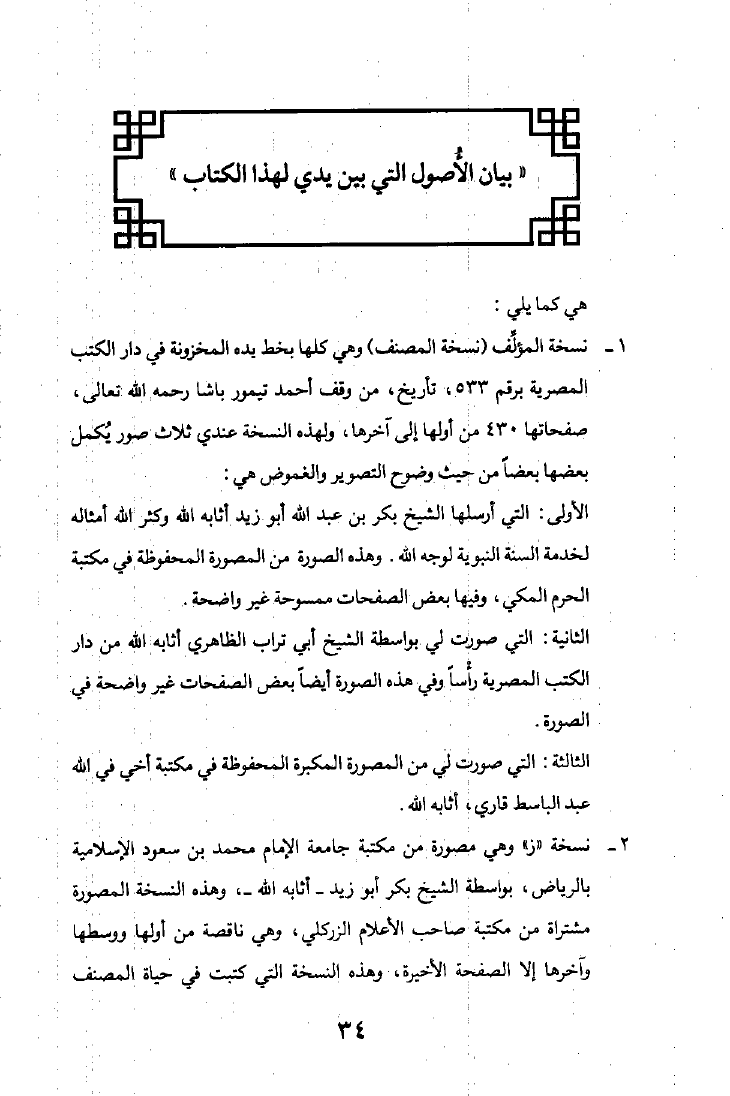 « بيان الأُصول التي بين يدي لهذا الكتاب »
هي كما يلي :
١ ـ نسخة المؤلِّف (نسخة المصنف) وهي كلها بخط يده المخزونة في دار الكتب
المصرية برقم ٥٣٣، تأريخ، من وقف أحمد تيمور باشا رحمه الله تعالى،
صفحاتها ٤٣٠ من أولها إلى آخرها، ولهذه النسخة عندي ثلاث صور يُكمل
بعضها بعضاً من حيث وضوح التصوير والغموض هي :
الأولى : التي أرسلها الشيخ بكر بن عبد الله أبو زيد أثابه الله وكثر الله أمثاله
لخدمة السنة النبوية لوجه الله . وهذه الصورة من المصورة المحفوظة في مكتبة
الحرم المكي، وفيها بعض الصفحات ممسوحة غير واضحة .
الثانية : التي صورت لي بواسطة الشيخ أبي تراب الظاهري أثابه الله من دار
الكتب المصرية رأُساً وفي هذه الصورة أيضاً بعض الصفحات غير واضحة في
الصورة .
الثالثة : التي صورت لي من المصورة المكبرة المحفوظة في مكتبة أخي في الله
عبد الباسط قاري، أثابه الله .
٢ ـ نسخة «ز» وهي مصورة من مكتبة جامعة الإمام محمد بن سعود الإسلامية
بالرياض، بواسطة الشيخ بكر أبو زيد ـ أثابه الله ـ، وهذه النسخة المصورة
مشتراة من مكتبة صاحب الأعلام الزركلي، وهي ناقصة من أولها ووسطها
وآخرها إلا الصفحة الأخيرة، وهذه النسخة التي كتبت في حياة المصنف
٣٤